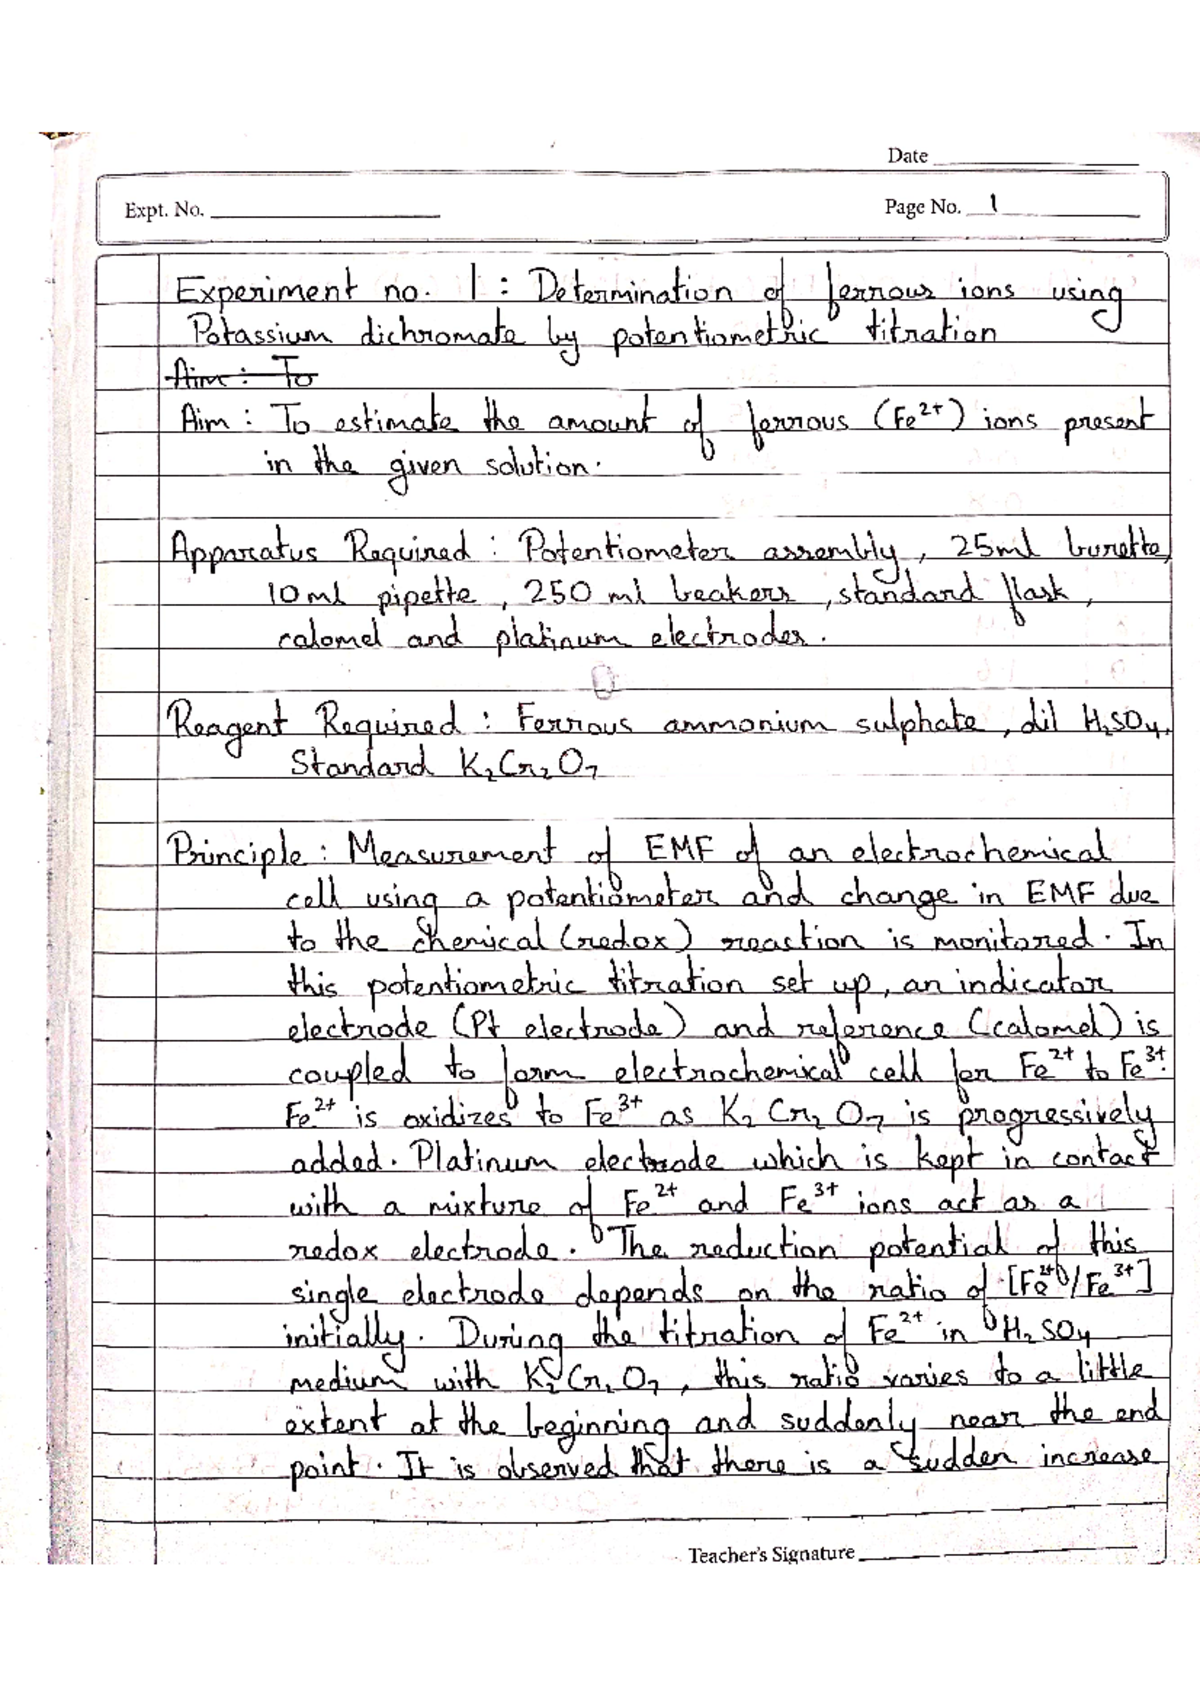 Date
Expt. No.
Page No. 1
Experiment no. 1 : Determination of ferrous ions using
Potassium dichromate by potentiometric titration
Aim : To
Aim : To estimate the amount of ferrous (Fe²⁺) ions present
in the given solution.
Apparatus Required : Potentiometer assembly, 25ml burette,
10ml pipette, 250 ml beakers, standard flask,
calomel and platinum electrodes.
Reagent Required : Ferrous ammonium sulphate, dil H₂SO₄,
Standard K₂Cr₂O₇
Principle : Measurement of EMF of an electrochemical
cell using a potentiometer and change in EMF due
to the chemical (redox) reaction is monitored. In
this potentiometric titration set up, an indicator
electrode (Pt electrode) and reference (calomel) is
coupled to form electrochemical cell for Fe²⁺ to Fe³⁺.
Fe²⁺ is oxidizes to Fe³⁺ as K₂Cr₂O₇ is progressively
added. Platinum electrode which is kept in contact
with a mixture of Fe²⁺ and Fe³⁺ ions act as a
redox electrode. The reduction potential of this
single electrode depends on the ratio of [Fe²⁺/Fe³⁺]
initially. During the titration of Fe²⁺ in H₂SO₄
medium with K₂Cr₂O₇, this ratio varies to a little
extent at the beginning and suddenly near the end
point. It is observed that there is a sudden increase
Teacher's Signature